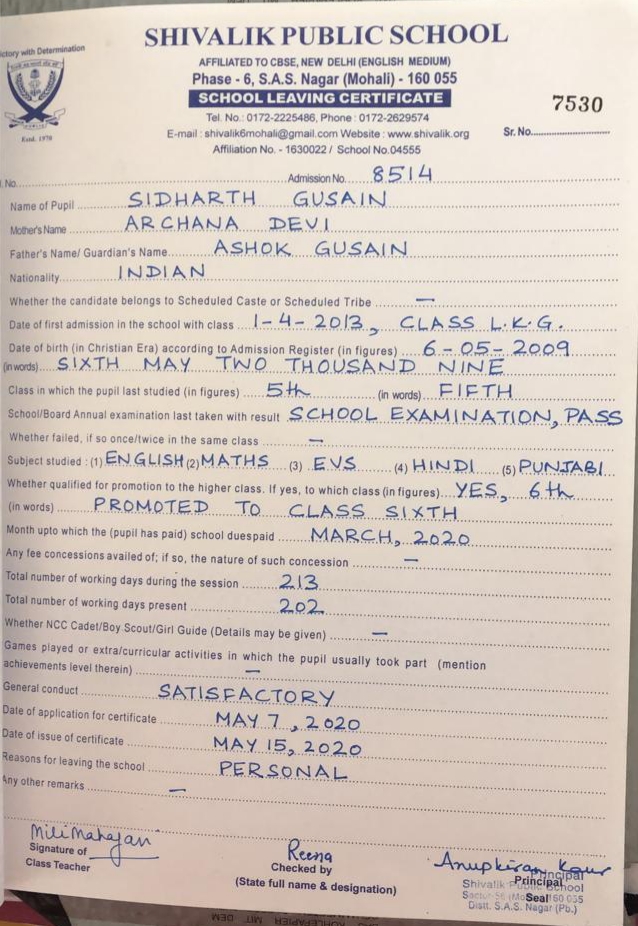 ictory with Determination
Estd. 1970
SHIVALIK PUBLIC SCHOOL
AFFILIATED TO CBSE, NEW DELHI (ENGLISH MEDIUM)
Phase - 6, S.A.S. Nagar (Mohali) - 160 055
SCHOOL LEAVING CERTIFICATE
7530
Tel. No.: 0172-2225486, Phone : 0172-2629574
E-mail : shivalik6mohali@gmail.com Website : www.shivalik.org
Sr. No.
Affiliation No. - 1630022 / School No.04555
No. Admission No. 8514
Name of Pupil SIDHARTH GUSAIN
Mother's Name ARCHANA DEVI
Father's Name/ Guardian's Name ASHOK GUSAIN
Nationality INDIAN
Whether the candidate belongs to Scheduled Caste or Scheduled Tribe —
Date of first admission in the school with class 1-4-2013, CLASS L.K.G.
Date of birth (in Christian Era) according to Admission Register (in figures) 6-05-2009
(in words) SIXTH MAY TWO THOUSAND NINE
Class in which the pupil last studied (in figures) 5th (in words) FIFTH
School/Board Annual examination last taken with result SCHOOL EXAMINATION, PASS
Whether failed, if so once/twice in the same class —
Subject studied : (1) ENGLISH (2) MATHS (3) EVS (4) HINDI (5) PUNJABI
Whether qualified for promotion to the higher class. If yes, to which class (in figures) YES, 6th
(in words) PROMOTED TO CLASS SIXTH
Month upto which the (pupil has paid) school duespaid MARCH, 2020
Any fee concessions availed of; if so, the nature of such concession —
Total number of working days during the session 213
Total number of working days present 202
Whether NCC Cadet/Boy Scout/Girl Guide (Details may be given) —
Games played or extra/curricular activities in which the pupil usually took part (mention
achievements level therein) —
General conduct SATISFACTORY
Date of application for certificate MAY 7, 2020
Date of issue of certificate MAY 15, 2020
Reasons for leaving the school PERSONAL
Any other remarks —
Mili Mahajan
Signature of
Class Teacher
Reena
Checked by
(State full name & designation)
Anupkiran Kaur
Principal
Principal
Shivalik Public School
Seal
160 055
Distt. S.A.S. Nagar (Pb.)